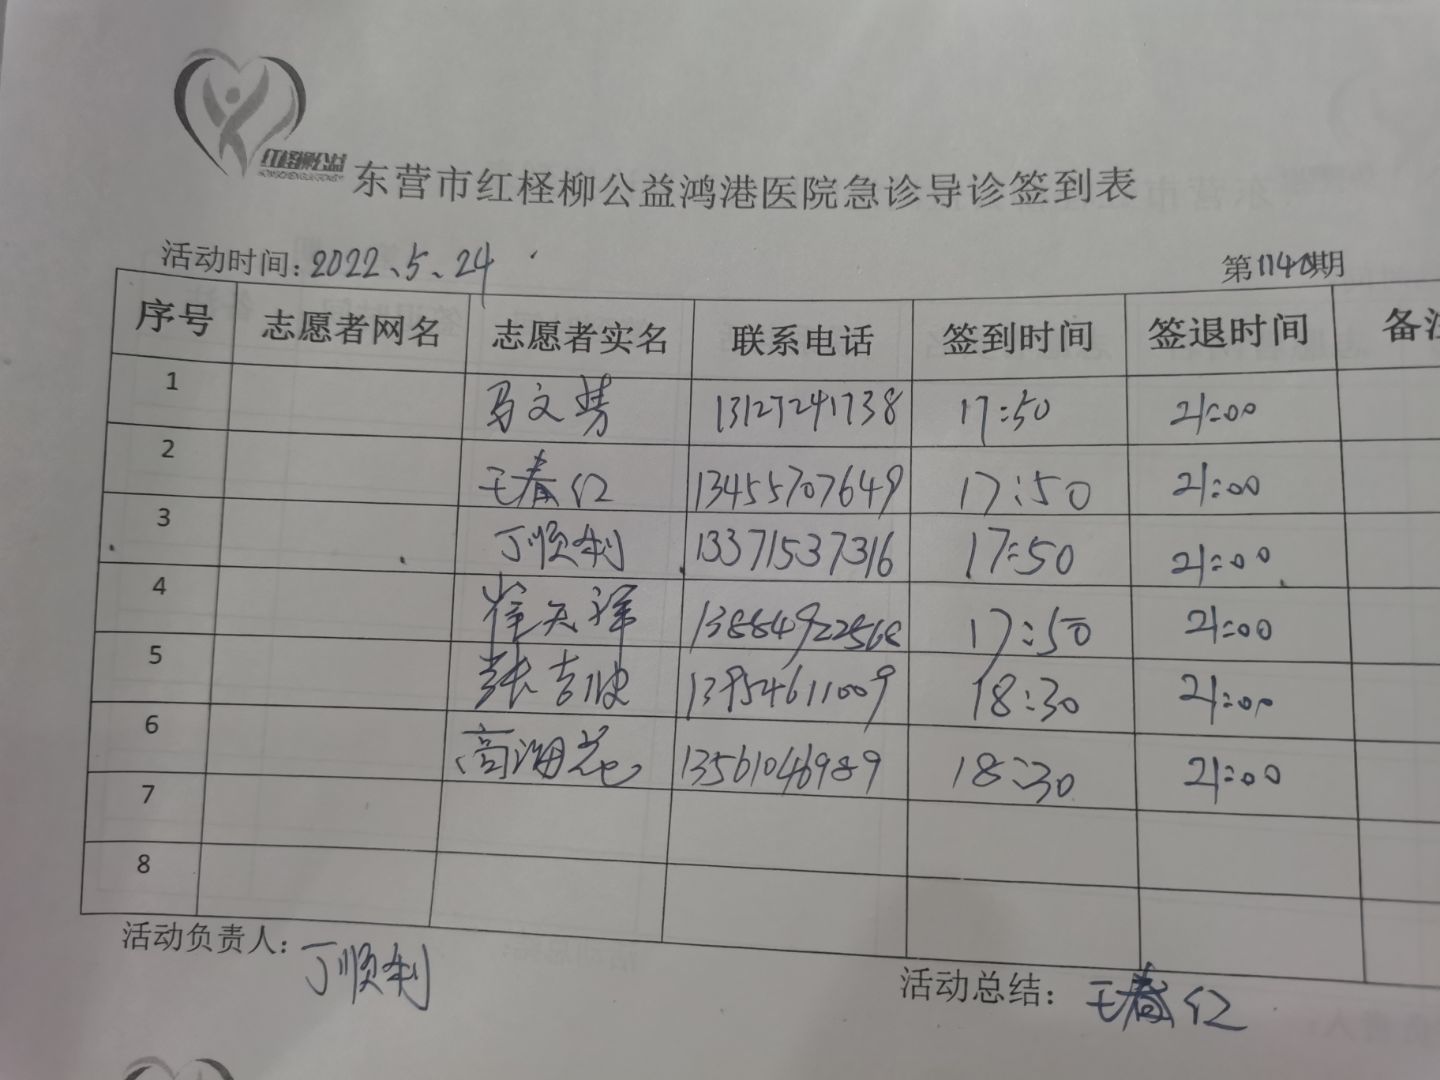 红柽柳公益
东营市红柽柳公益鸿港医院急诊导诊签到表
活动时间:2022、5、24
第1140期
序号 志愿者网名 志愿者实名 联系电话 签到时间 签退时间 备注
1 马文慧 13127241738 17:50 21:00
2 王春红 13455707649 17:50 21:00
3 丁顺利 13371537316 17:50 21:00
4 崔天祥 13884922568 17:50 21:00
5 张吉波 13954611009 18:30 21:00
6 高海花 13561046989 18:30 21:00
7
8
活动负责人: 丁顺利
活动总结: 王春红